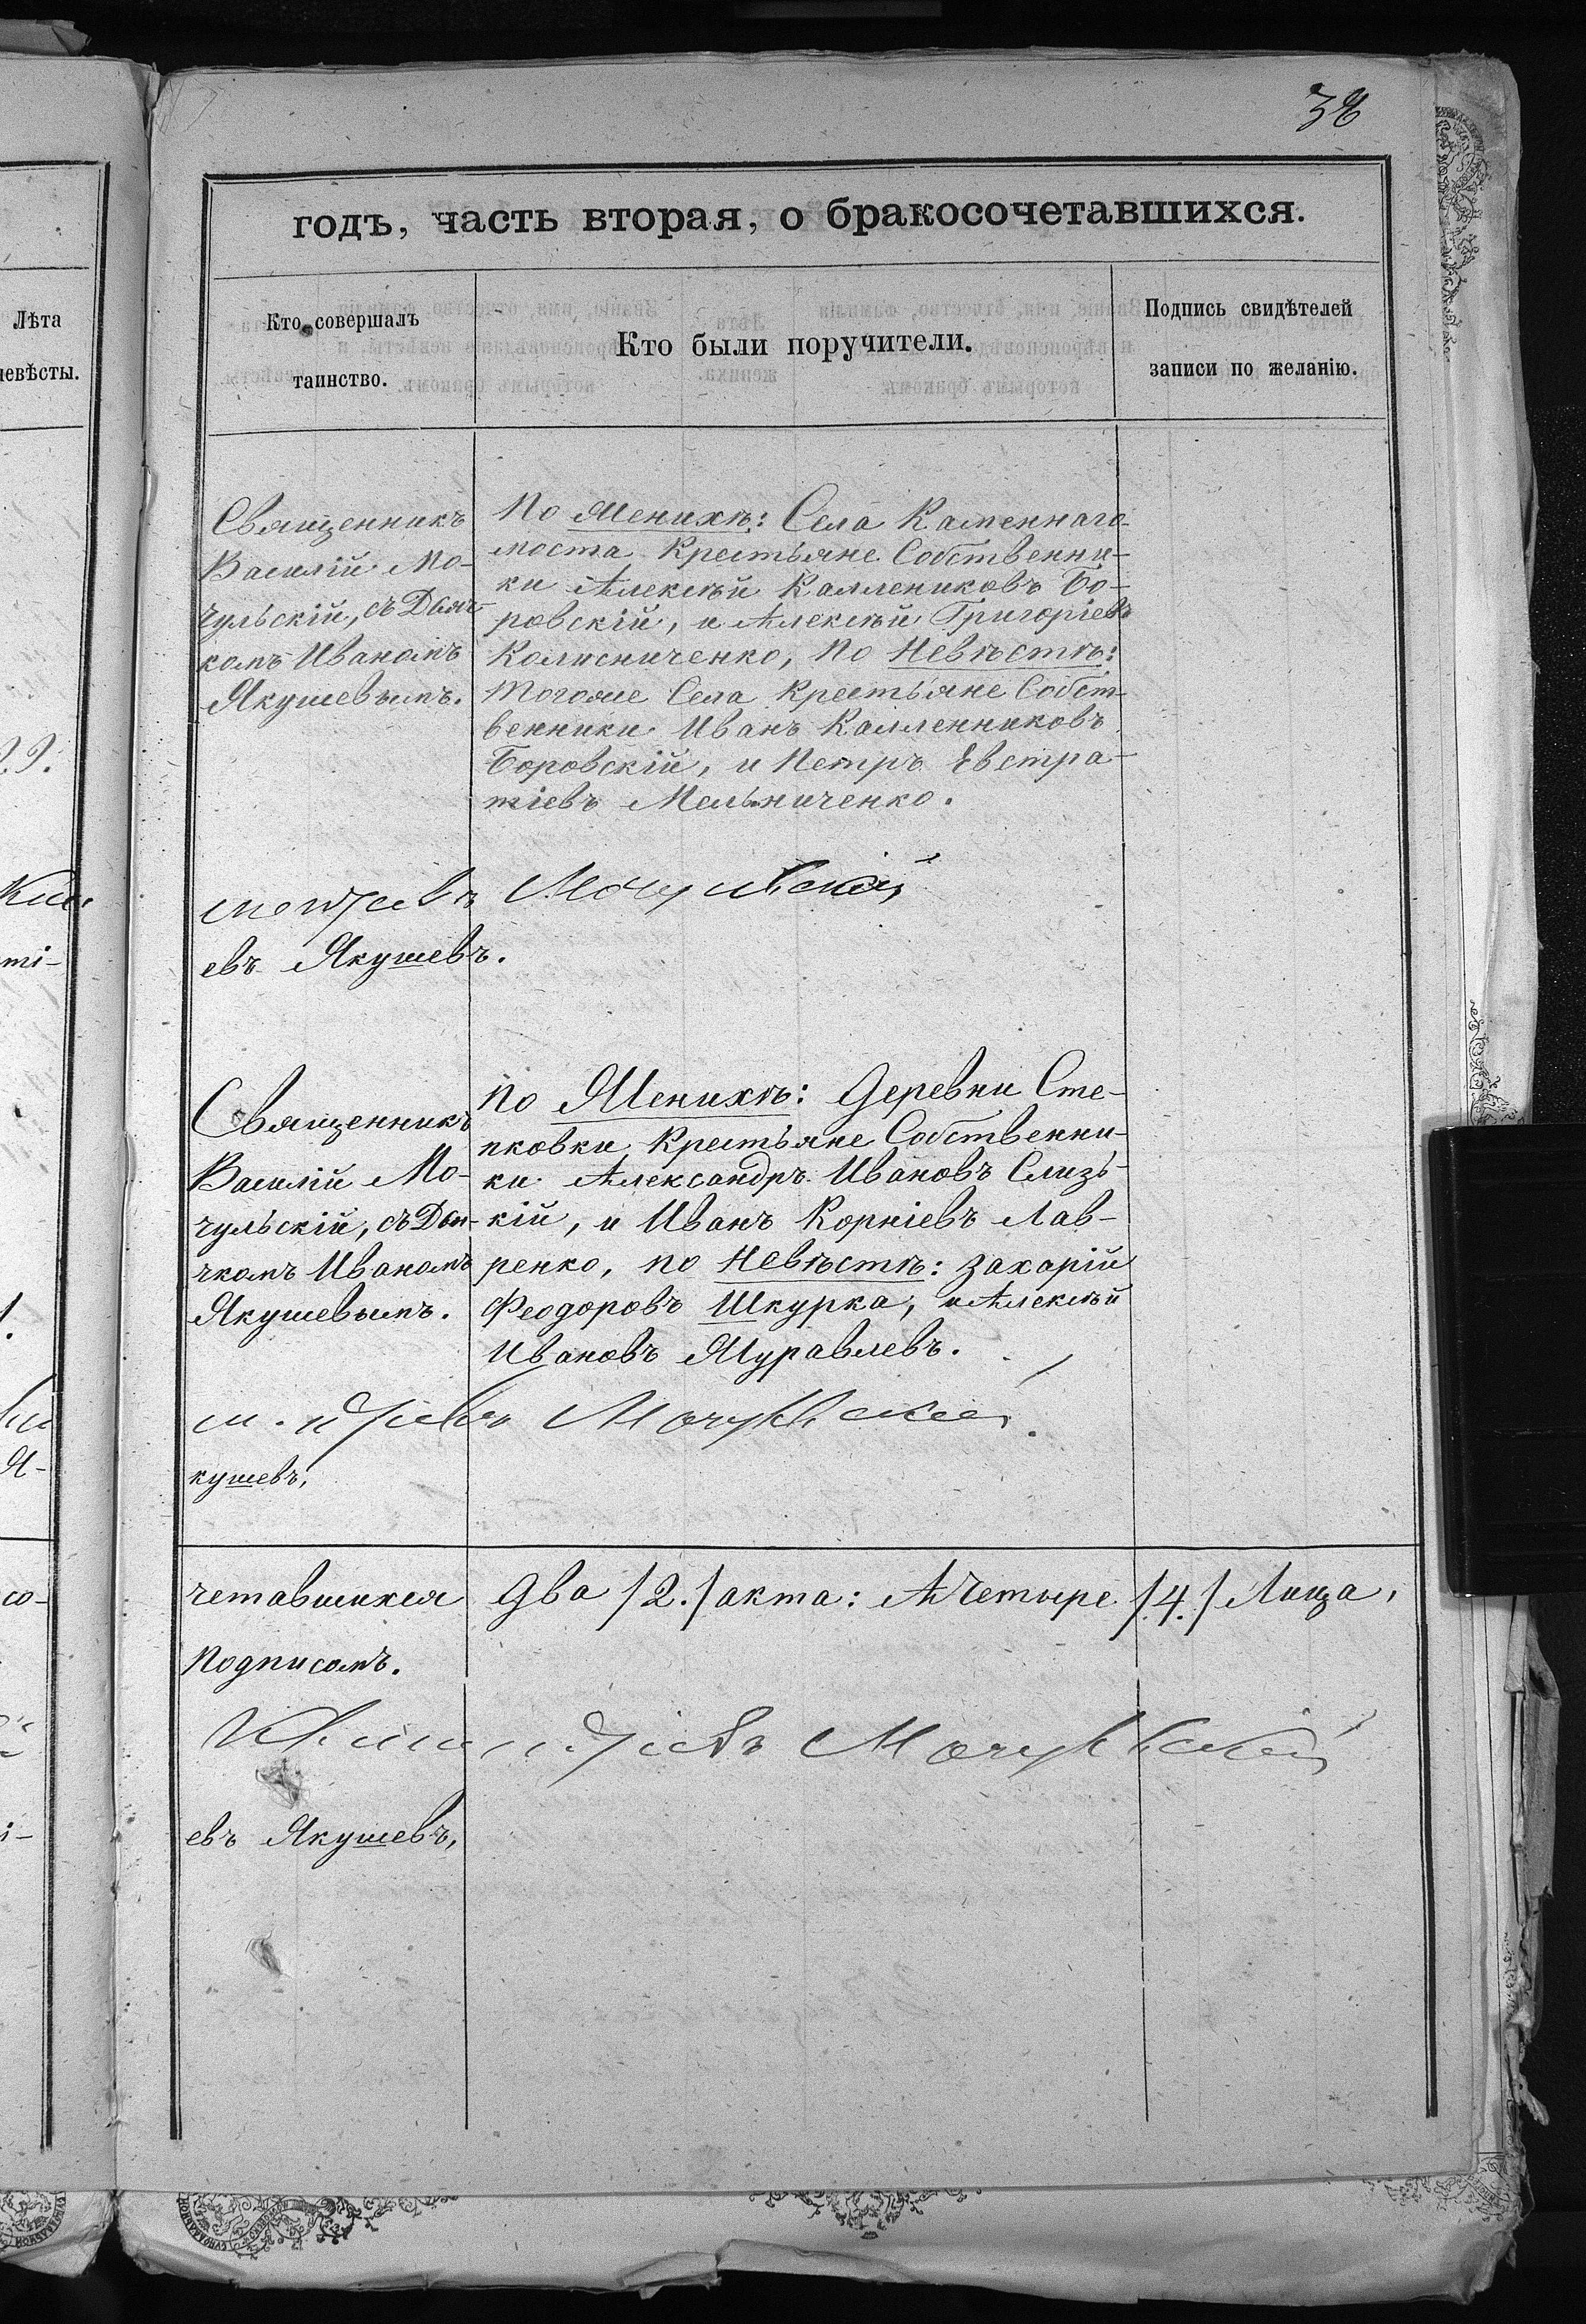 38
годъ, часть вторая, о бракосочетавшихся.
Лѣта
невѣсты.
Кто совершалъ
таинство.
Кто были поручители.
Подпись свидѣтелей
записи по желанію.
Священникъ
Василій Мо-
чульскій, съ Дьяч-
комъ Иваномъ
Якушевымъ.
По Женихѣ: Села Каменнаго-
моста Крестьяне Собственни-
ки Алексѣй Каллениковъ Бо-
ровскій, и Алексѣй Григоріевъ
Колисниченко, По Невѣстѣ:
Тогоже Села Крестьяне Собст-
венники Иванъ Калленниковъ
Боровскій, и Петръ Евстра-
тіевъ Мельниченко.
Мочульскій
евъ Якушевъ.
ті-
Священникъ
Василій Мо-
чульскій, съ Дья-
чкомъ Иваномъ
Якушевымъ.
По Женихѣ: Деревни Сте-
пковки Крестьяне Собственни-
ки Александръ Ивановъ Слизь-
кій, и Иванъ Корніевъ Лав-
ренко, по Невѣстѣ: Захарій
Феодоровъ Шкурка, и Алексѣй
Ивановъ Журавлевъ.
Мочульскій
Я-
кушевъ,
со-
четавшихся Два /2./ акта: А Четыре /4./ Лица,
Подписомъ.
Мочульскій
евъ Якушевъ,